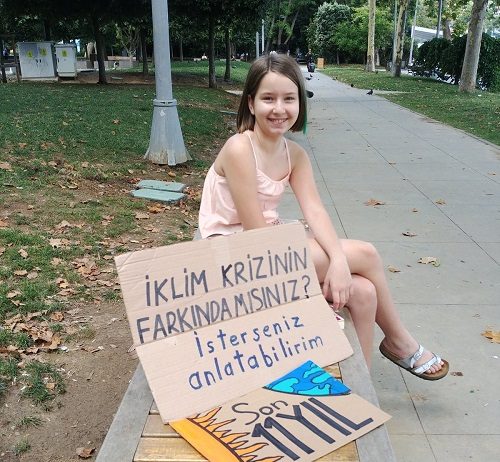 İKLİM KRİZİNİN
FARKINDA MISINIZ?
İsterseniz
anlatabilirim
Son
11 YIL